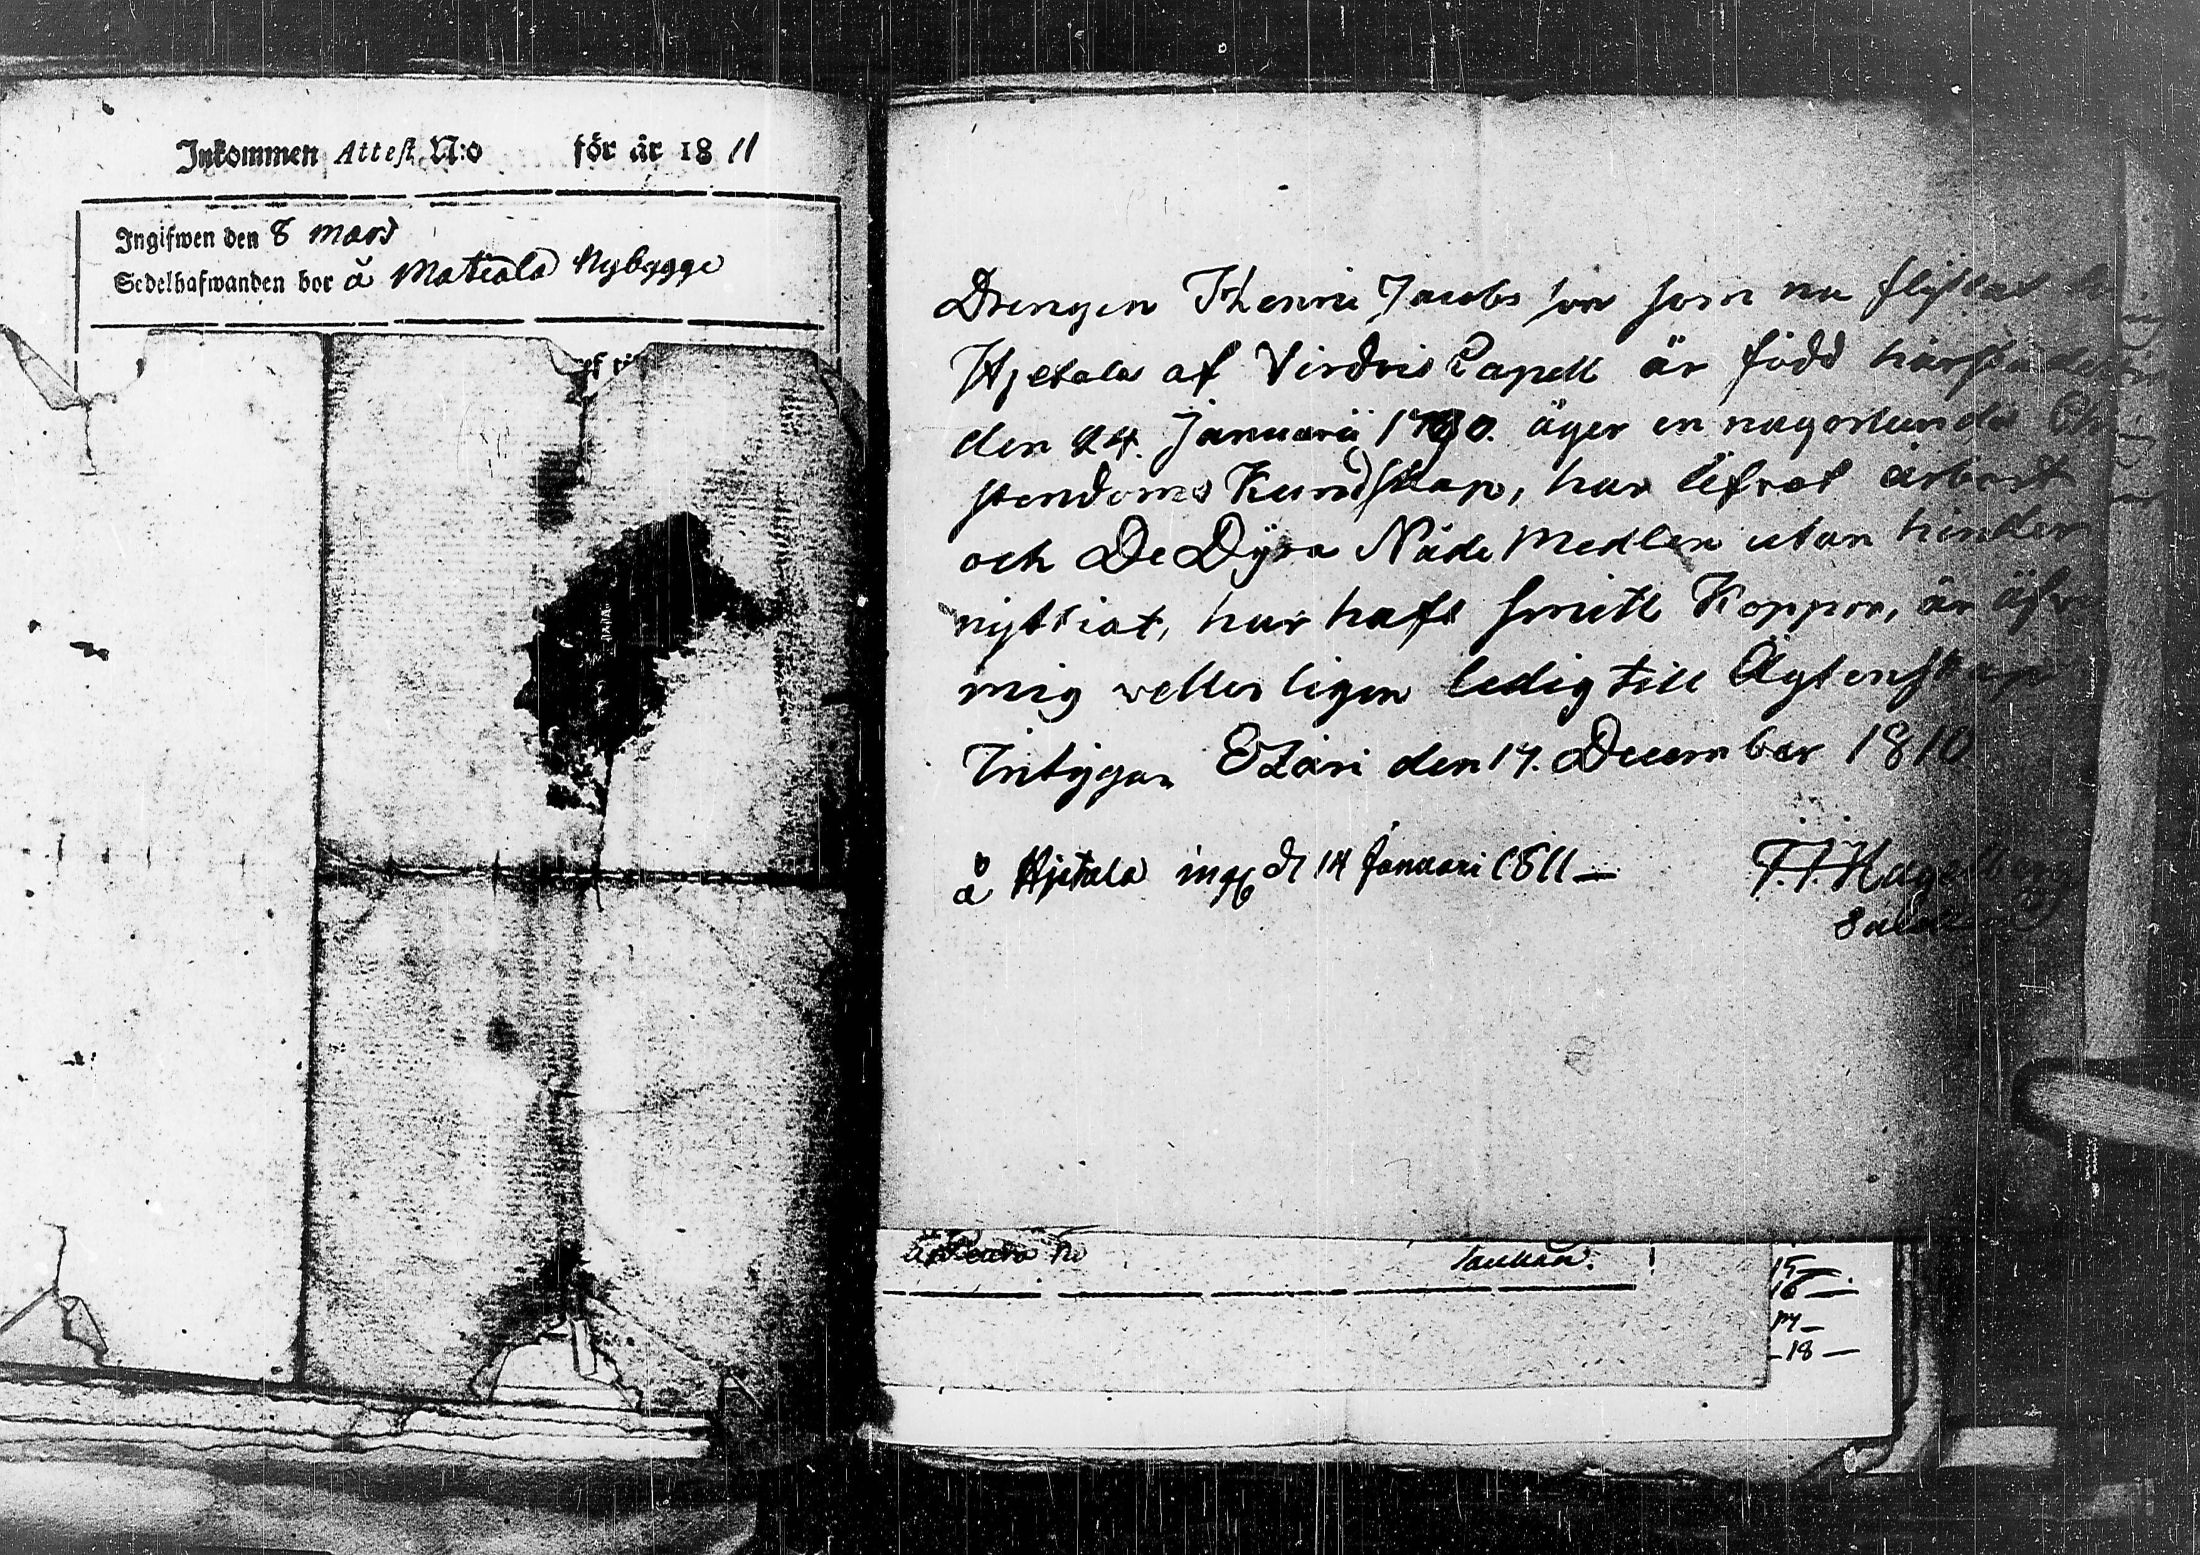 Inkommen Attest N:o för år 1811
Ingifwen den 8 mars
Sedelhafwanden bor å Matiala Nybygge
Drengen Henric Jacobs son som nu flyttat
Hjetala af Virdois Capell är född härstädes
den 24. Januarii 1780. äger en nagorlunda Chri
stendoms Kundskap, har lefvat ärbart
och De Dyra Nåde Medlen utan hinder
nyttiat, har haft smitt Koppor, är äfven
mig vetterligen ledig till Ägtenskap
Intygar Etzäri den 17. December 1810
å Hjetala ing d 14 Januari 1811 —
15 —
16 —
17 —
18 —